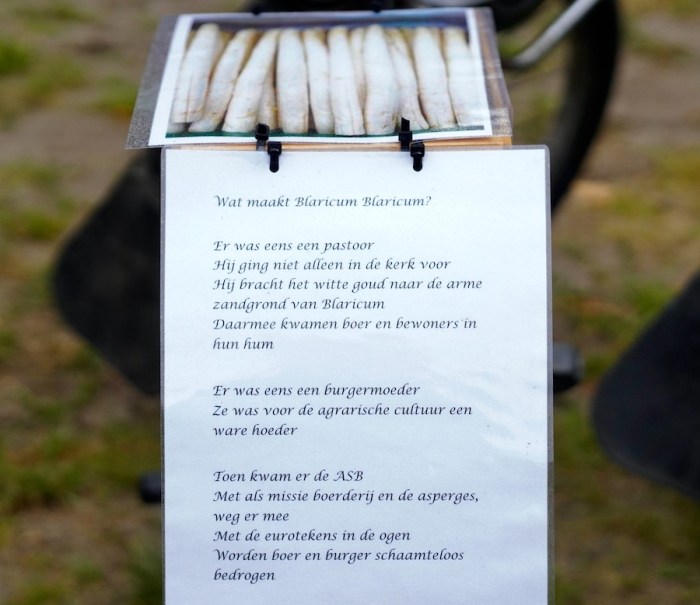 Wat maakt Blaricum Blaricum?
Er was eens een pastoor
Hij ging niet alleen in de kerk voor
Hij bracht het witte goud naar de arme
zandgrond van Blaricum
Daarmee kwamen boer en bewoners in
hun hum
Er was eens een burgermoeder
Ze was voor de agrarische cultuur een
ware hoeder
Toen kwam er de ASB
Met als missie boerderij en de asperges,
weg er mee
Met de eurotekens in de ogen
Worden boer en burger schaamteloos
bedrogen